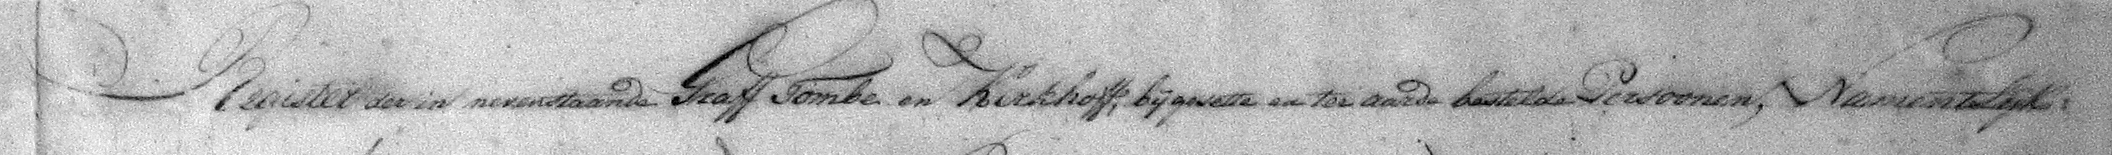 Register der in nevenstaande Graff Tombe en Kerkhoff, bijgesette en ter aarde bestelde Persoonen, Namentlijk: